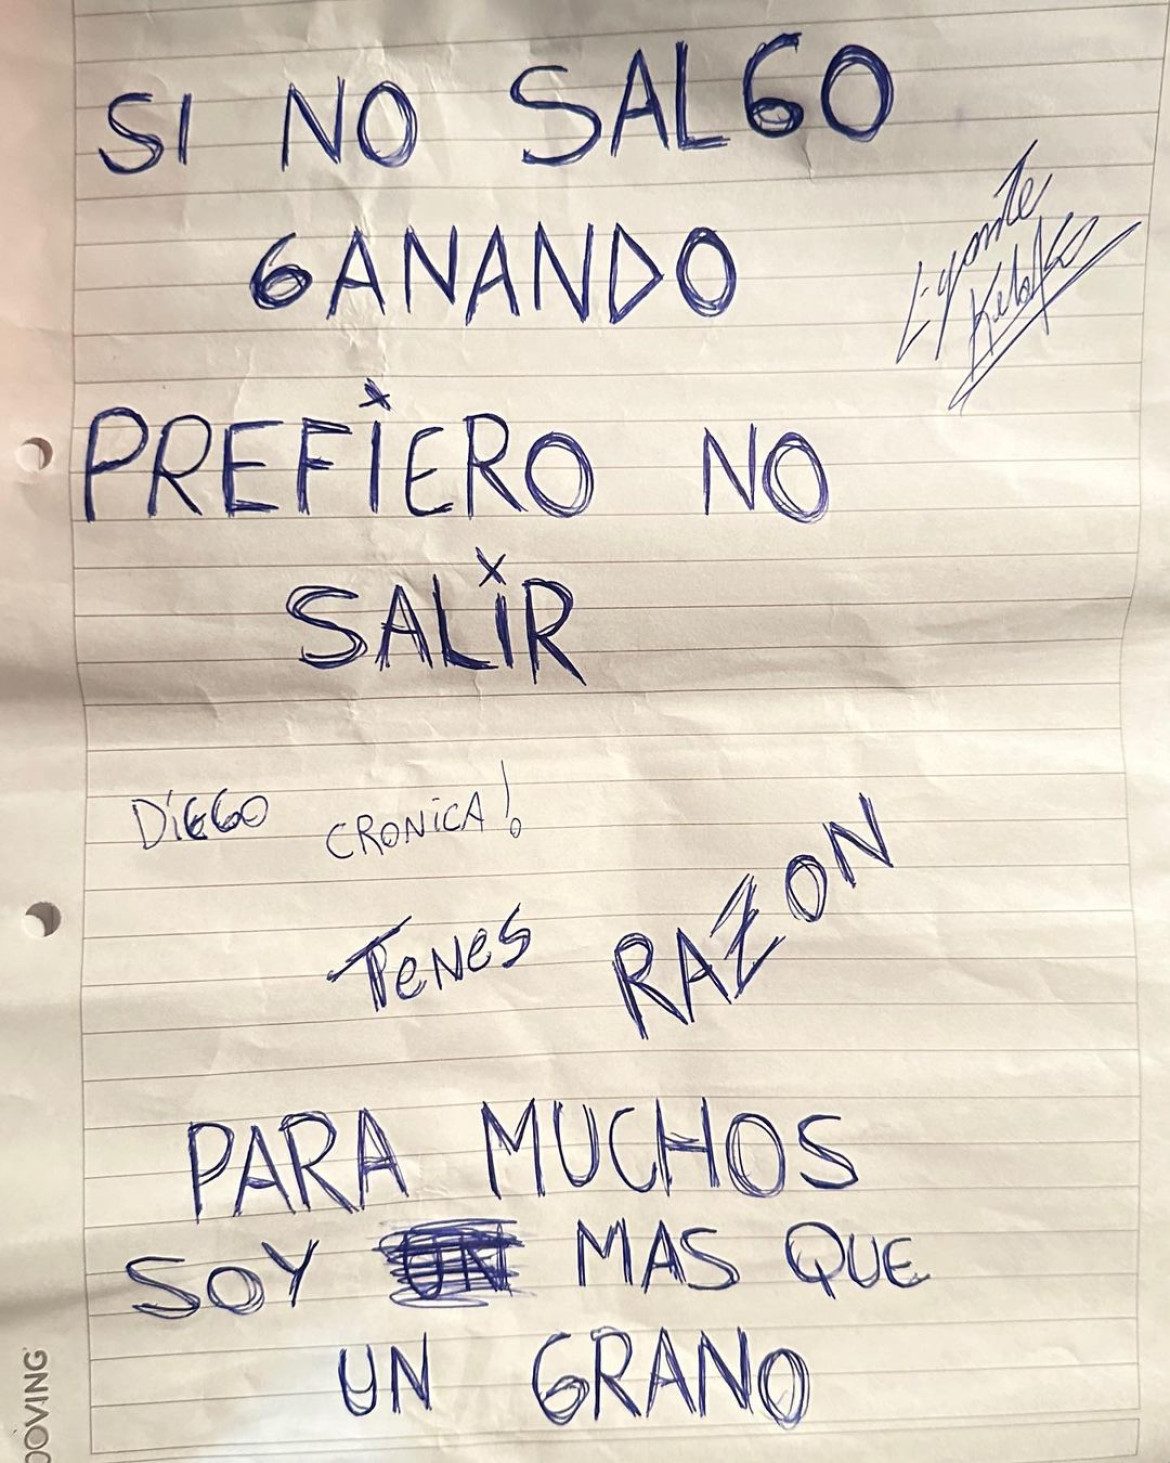 SI NO SALGO
GANANDO
PREFiERO NO
SALiR
DiEGO CRONiCA!
TeNeS RAZON
PARA MUCHOS
SOY UN MAS QUE
UN GRANO
OOVING